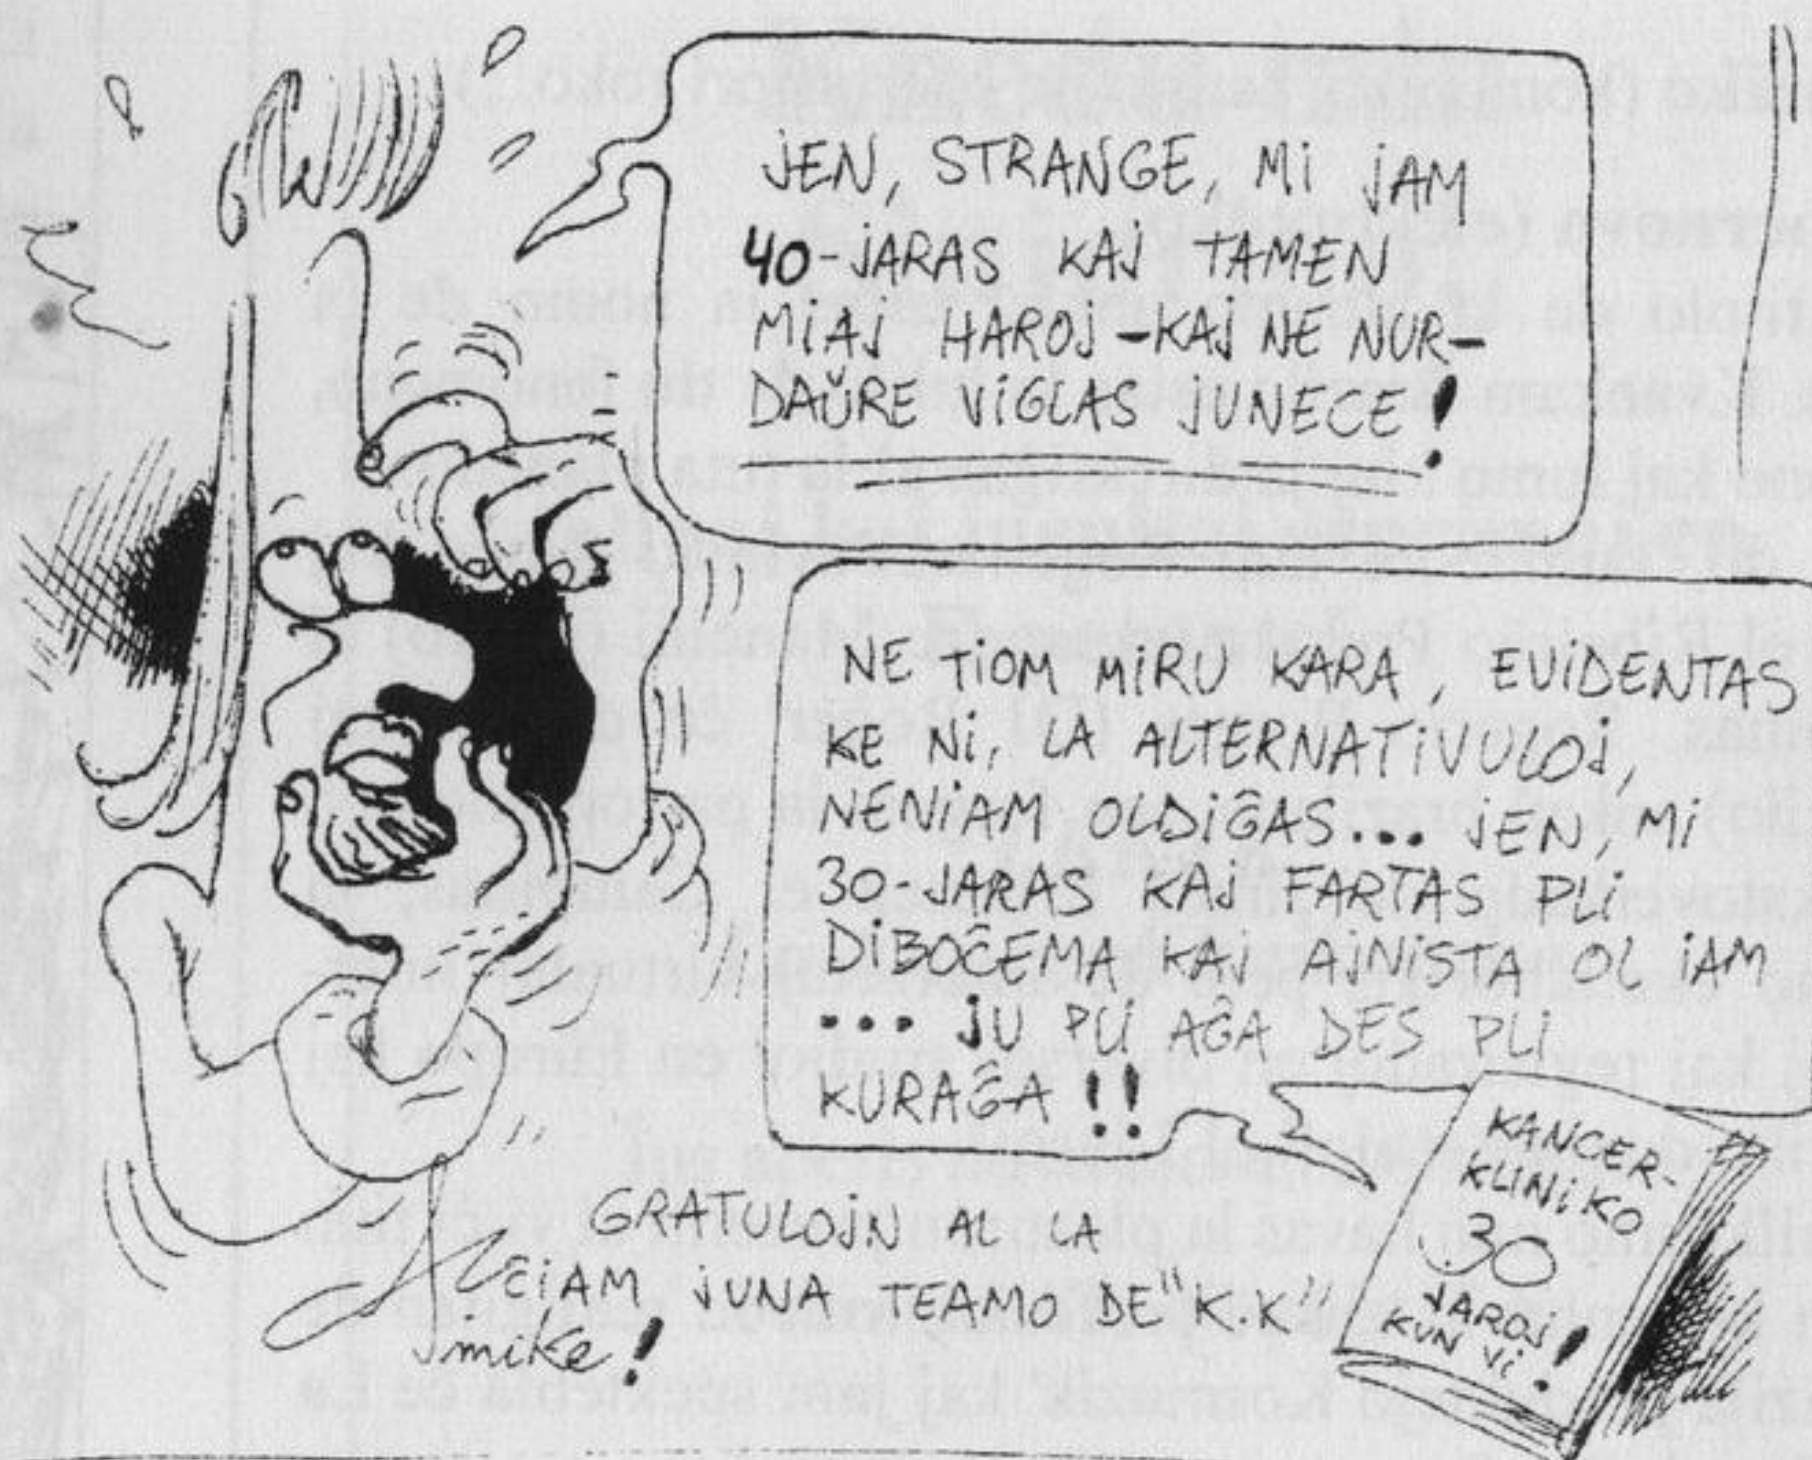 JEN, STRANGE, MI JAM
40-JARAS KAJ TAMEN
MIAJ HAROJ -KAJ NE NUR-
DAŬRE VIGLAS JUNECE!
NE TIOM MIRU KARA, EVIDENTAS
KE NI, LA ALTERNATIVULOJ,
NENIAM OLDIĜAS... JEN, MI
30-JARAS KAJ FARTAS PLI
DIBOĈEMA KAJ AJNISTA OL IAM
... JU PLI AĜA DES PLI
KURAĜA!!
KANCER-
KLINIKO
30
JAROJ
KUN VI!
GRATULOJN AL LA
ĈIAM JUNA TEAMO DE "K.K"